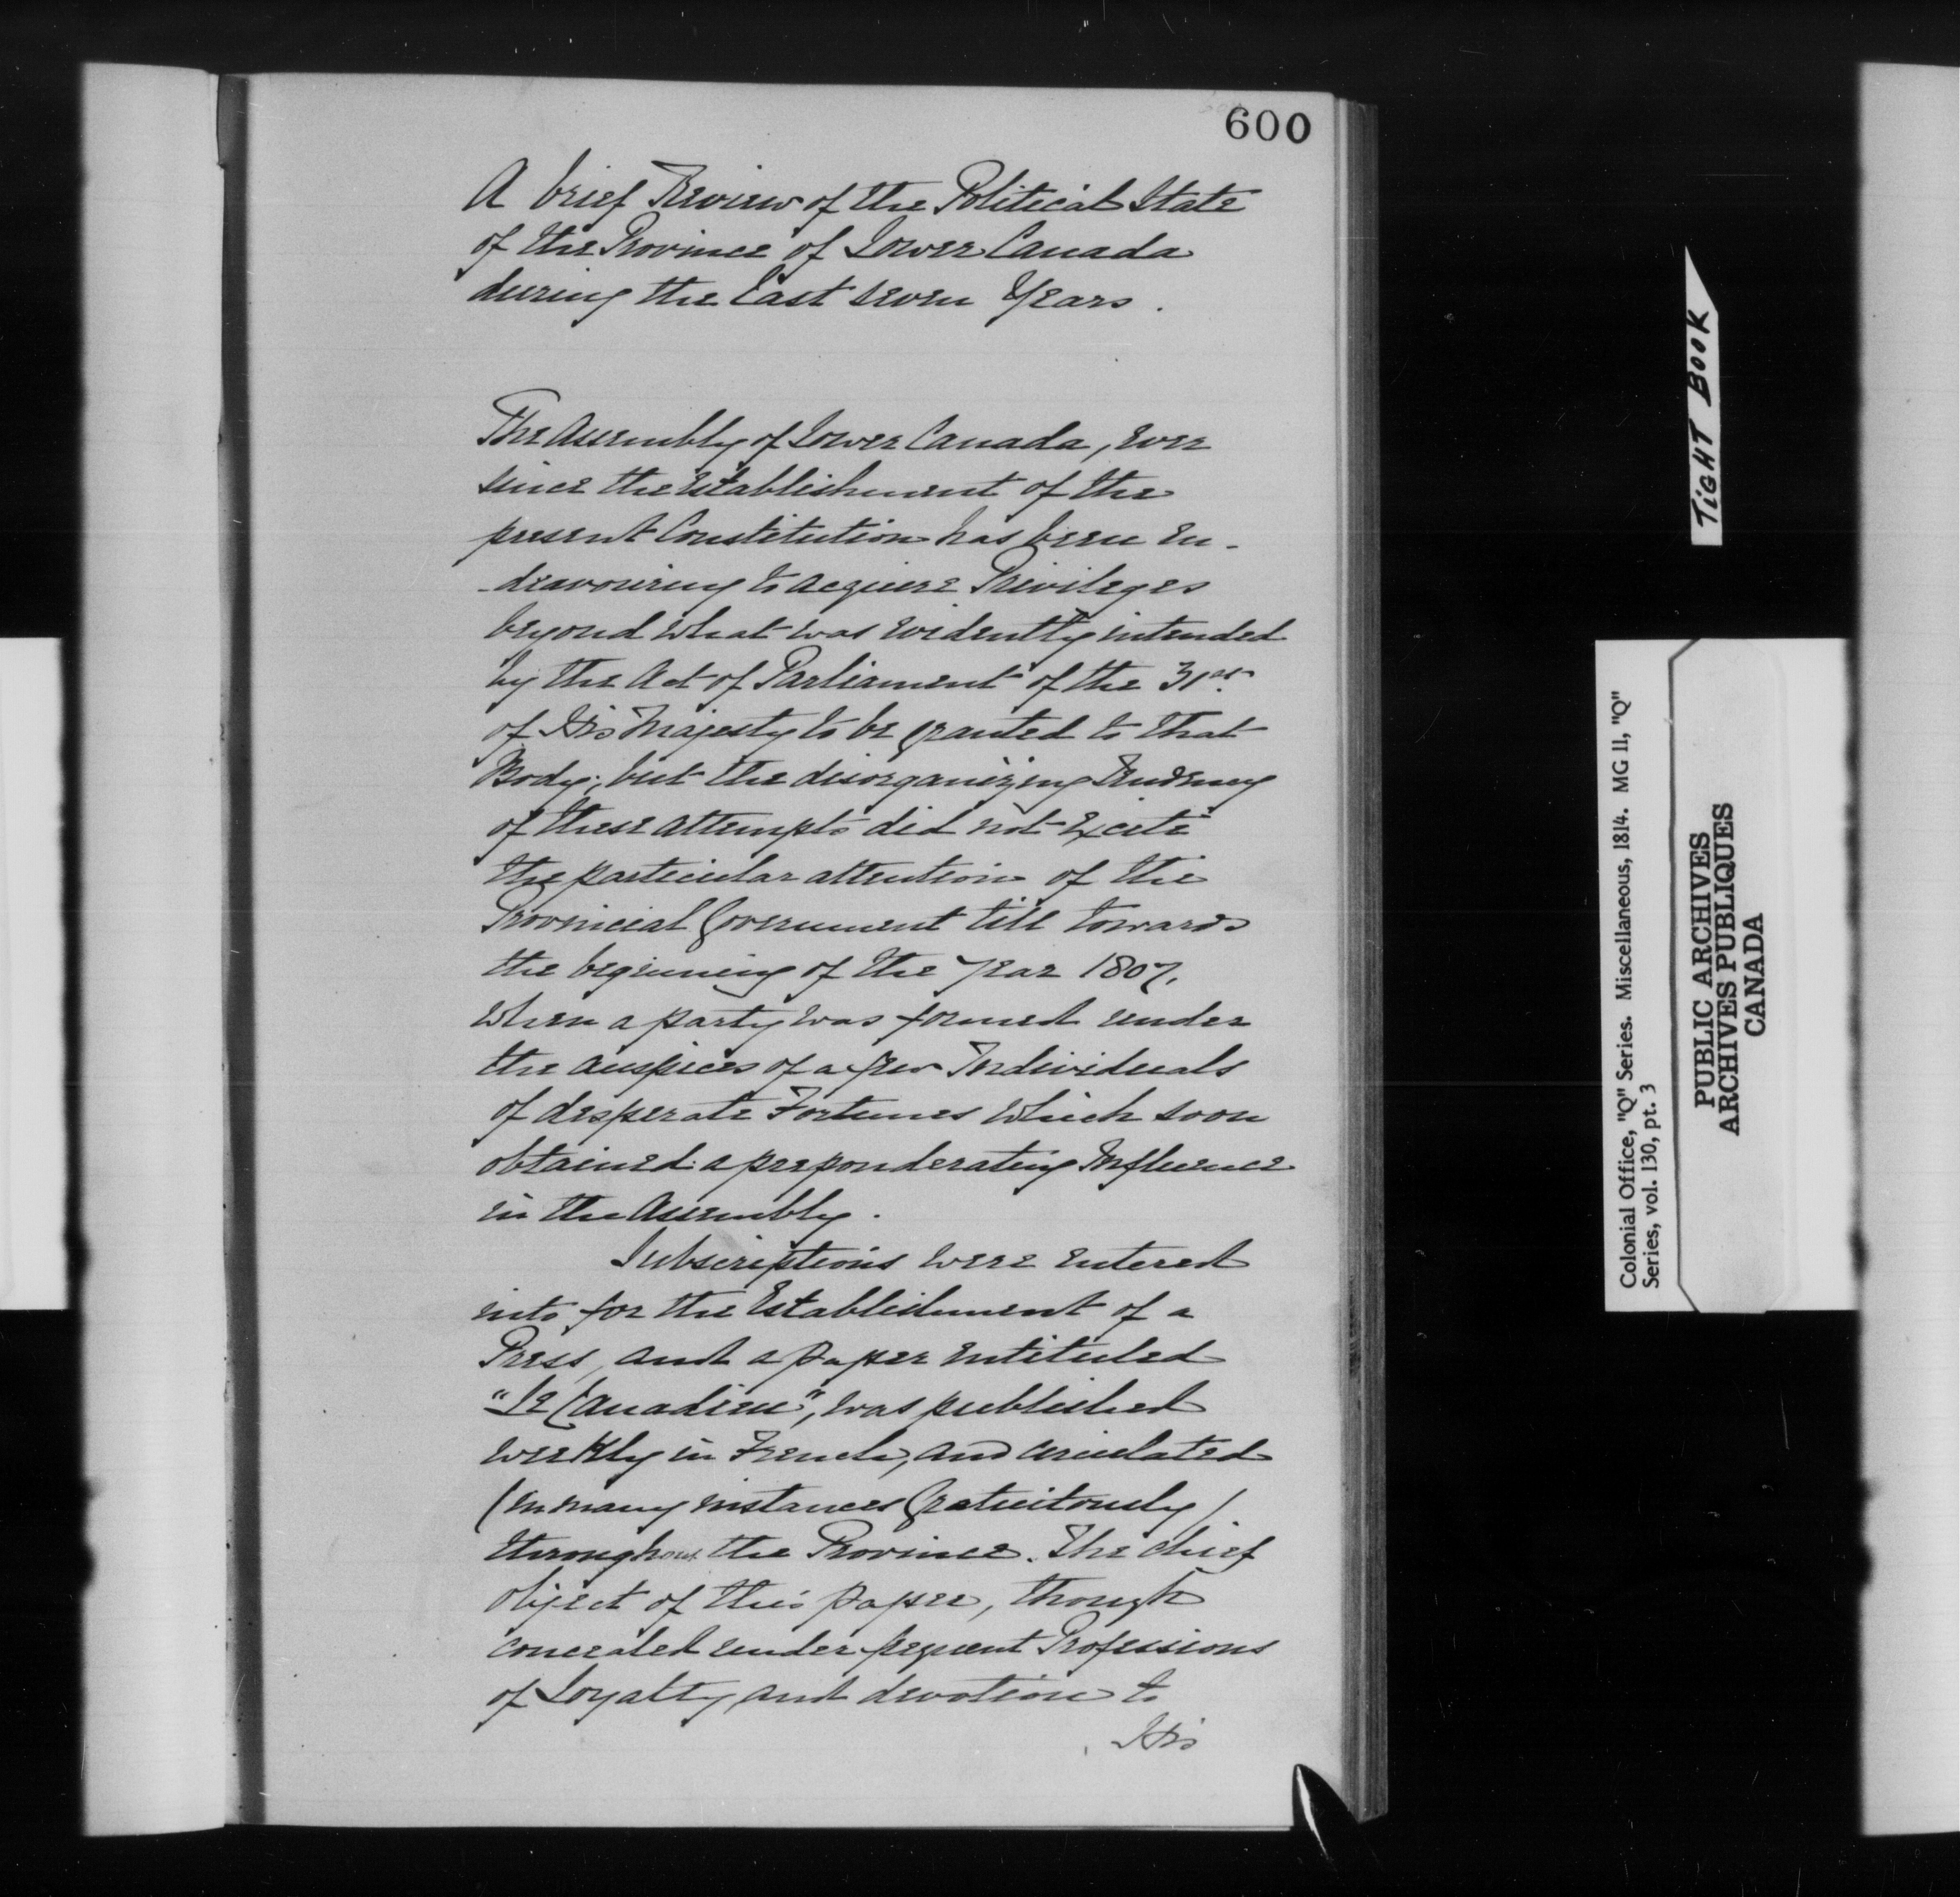 600
A brief Review of the Political State
of the Province of Lower Canada
during the last seven Years.
The Assembly of Lower Canada, ever
since the establishment of the
present Constitution has been en-
-deavouring to acquire Privileges
beyond what was evidently intended
by the Act of Parliament of the 31st
of His Majesty to be granted to that
Body; but the disorganizing Tendency
of these attempts did not excite
the particular attention of the
Provincial Government till towards
the beginning of the Year 1807,
when a party was formed under
the auspices of a few Individuals
of desperate Fortunes which soon
obtained a preponderating Influence
in the Assembly.
Subscriptions were entered
into for the Establishment of a
Press, and a paper entituled
"Le Canadien", was published
weekly in French, and circulated
(in many instances Gratuitously)
throughout the Province. The chief
object of this paper, though
concealed under frequent Professions
of Loyalty and devotion to
His
TIGHT BOOK
Colonial Office, "Q" Series. Miscellaneous, 1814. MG 11, "Q"
Series, vol. 130, pt. 3
PUBLIC ARCHIVES
ARCHIVES PUBLIQUES
CANADA